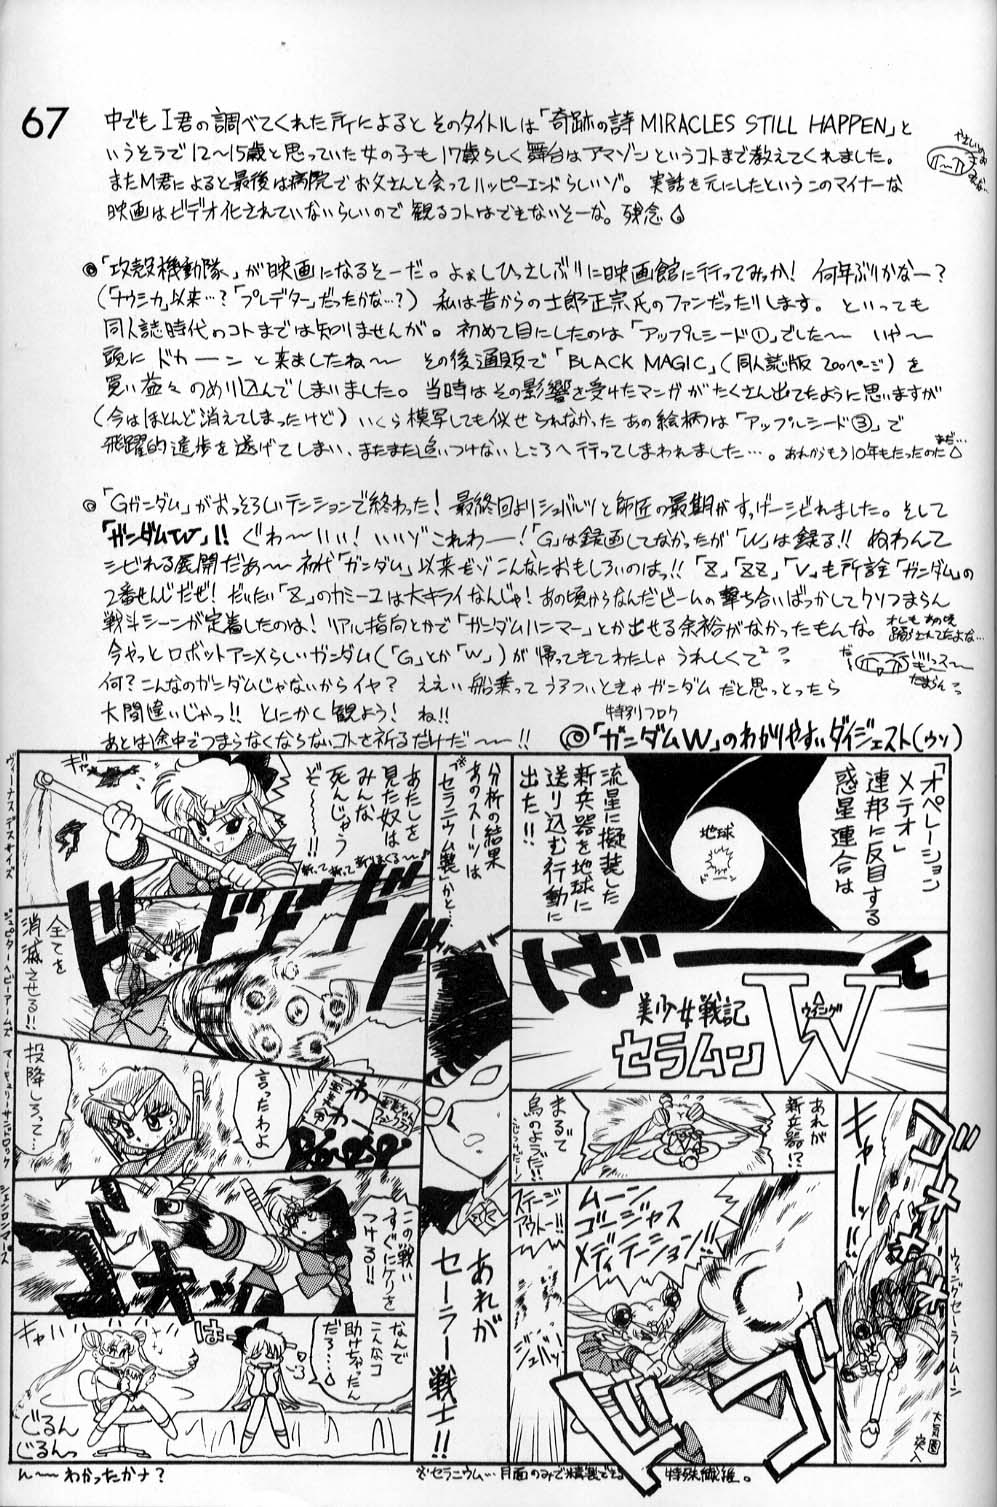 67
中でもI君の調べてくれた所によるとそのタイトルは「奇跡の詩 MIRACLES STILL HAPPEN」と
いうそうで12〜15歳と思っていた女の子も17歳らしく舞台はアマゾンというコトまで教えてくれました。
またM君によると最後は病院でお父さんと会ってハッピーエンドらしいゾ。実話を元にしたというこのマイナーな
映画はビデオ化されていないらしいので観るコトはできないそーな。残念
◎「攻殻機動隊」が映画になるそーだ。よぉしひっさしぶりに映画館に行ってみっか! 何年ぶりかなー?
(「ナウシカ」以来…?「プレデター」だったかな…?) 私は昔からの士郎正宗氏のファンだったりします。といっても
同人誌時代のコトまでは知りませんが。初めて目にしたのは「アップルシード①」でした〜 いや〜
頭にドカーンと来ましたね〜 その後通販で「BLACK MAGIC」(同人誌版200ページ)を
買い益々のめり込んでしまいました。当時はその影響を受けたマンガがたくさん出てたように思いますが
(今はほとんど消えてしまったけど)いくら模写しても似せられなかったあの絵柄は「アップルシード③」で
飛躍的進歩を遂げてしまい、またまた追いつけないところへ行ってしまわれました…。あれからもう10年もたったのだ
◎「Gガンダム」がおっそろしいテンションで終わった! 最終回よりシュバルツと師匠の最期がすっげーシビれました。そして
「ガンダムW」!! ぐわ〜いい! いいゾこれわー!「G」は録画してなかったが「W」は録る!! ぬわんて
シビれる展開だあ〜 初代「ガンダム」以来だゾこんなにおもしろいのはっ!!「Z」「ZZ」「V」も所詮「ガンダム」の
2番せんじだぜ! だいたい「Z」のカミーユは大キライなんじゃ! あの頃からなんだビームの撃ち合いばっかしてクソつまらん
戦斗シーンが定着したのは! リアル指向とかで「ガンダムハンマー」とか出せる余裕がなかったもんな。
今やっとロボットアニメらしいガンダム(「G」とか「W」)が帰ってきてわたしゃうれしくて²?
何?こんなのガンダムじゃないからイヤ? ええい船乗ってうろついときゃガンダムだと思っとったら
大間違いじゃっ!! とにかく観よう! ね!!
あとは途中でつまらなくならないコトを祈るだけだ〜!!
特別フロク
◎「ガンダムW」のわかりやすいダイジェスト(ウソ)
「オペレーション
メテオ」
連邦に反目する
惑星連合は
地球
ドーン
流星に擬装した
新兵器を地球に
送り込む行動に
出た!!
ばーーん
美少女戦記
セラムン
W
ウイング
キャーーッ
ゴメオオオ
ウィング・セーラームーン
大気圏
突入
あれが
新兵器!?
まるで
鳥のようだ!!
ムーン
ゴージャス
メディテーション!!
ステージ
アウトー!!
ジュバッ
ドゴ
分析の結果
あのスーツは
※セラニウム製しかと…
あれが
セーラー戦士!!
あたしを
見た奴は
みんな
死んじゃう
ぞ〜〜!!
ギャー
ヴィーナスデスサイズ
ドドドド
全てを
消滅させる!!
ジュピターヘビーアームズ
投降しろって…
言ったわよ
わー
わー
マーキュリーサンドロック
この戦い
すぐにケリを
つける!!
ゴオオッ
シェンロンマーズ
なんで
こんなコ
助けちゃったん
だろ…
はー
キャハ
じるん
じるんっ
ん〜わかったかナ?
※セラニウム…月面のみで精製できる 特殊繊維。